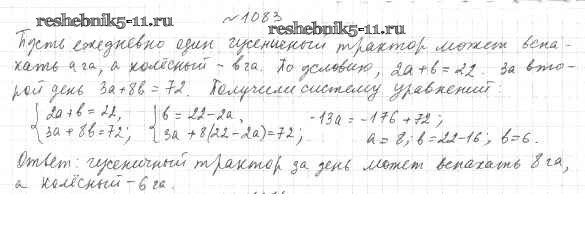 №1083
reshebnik5-11.ru reshebnik5-11.ru
Пусть ежедневно один гусеничный трактор может вспа-
хать a га, а колёсный - b га. По условию, 2a+b=22. За вто-
рой день 3a+8b=72. Получили систему уравнений:
{2a+b=22, {b=22-2a, -13a=-176+72;
{3a+8b=72; {3a+8(22-2a)=72; a=8; b=22-16; b=6.
Ответ: гусеничный трактор за день может вспахать 8 га,
а колёсный - 6 га.